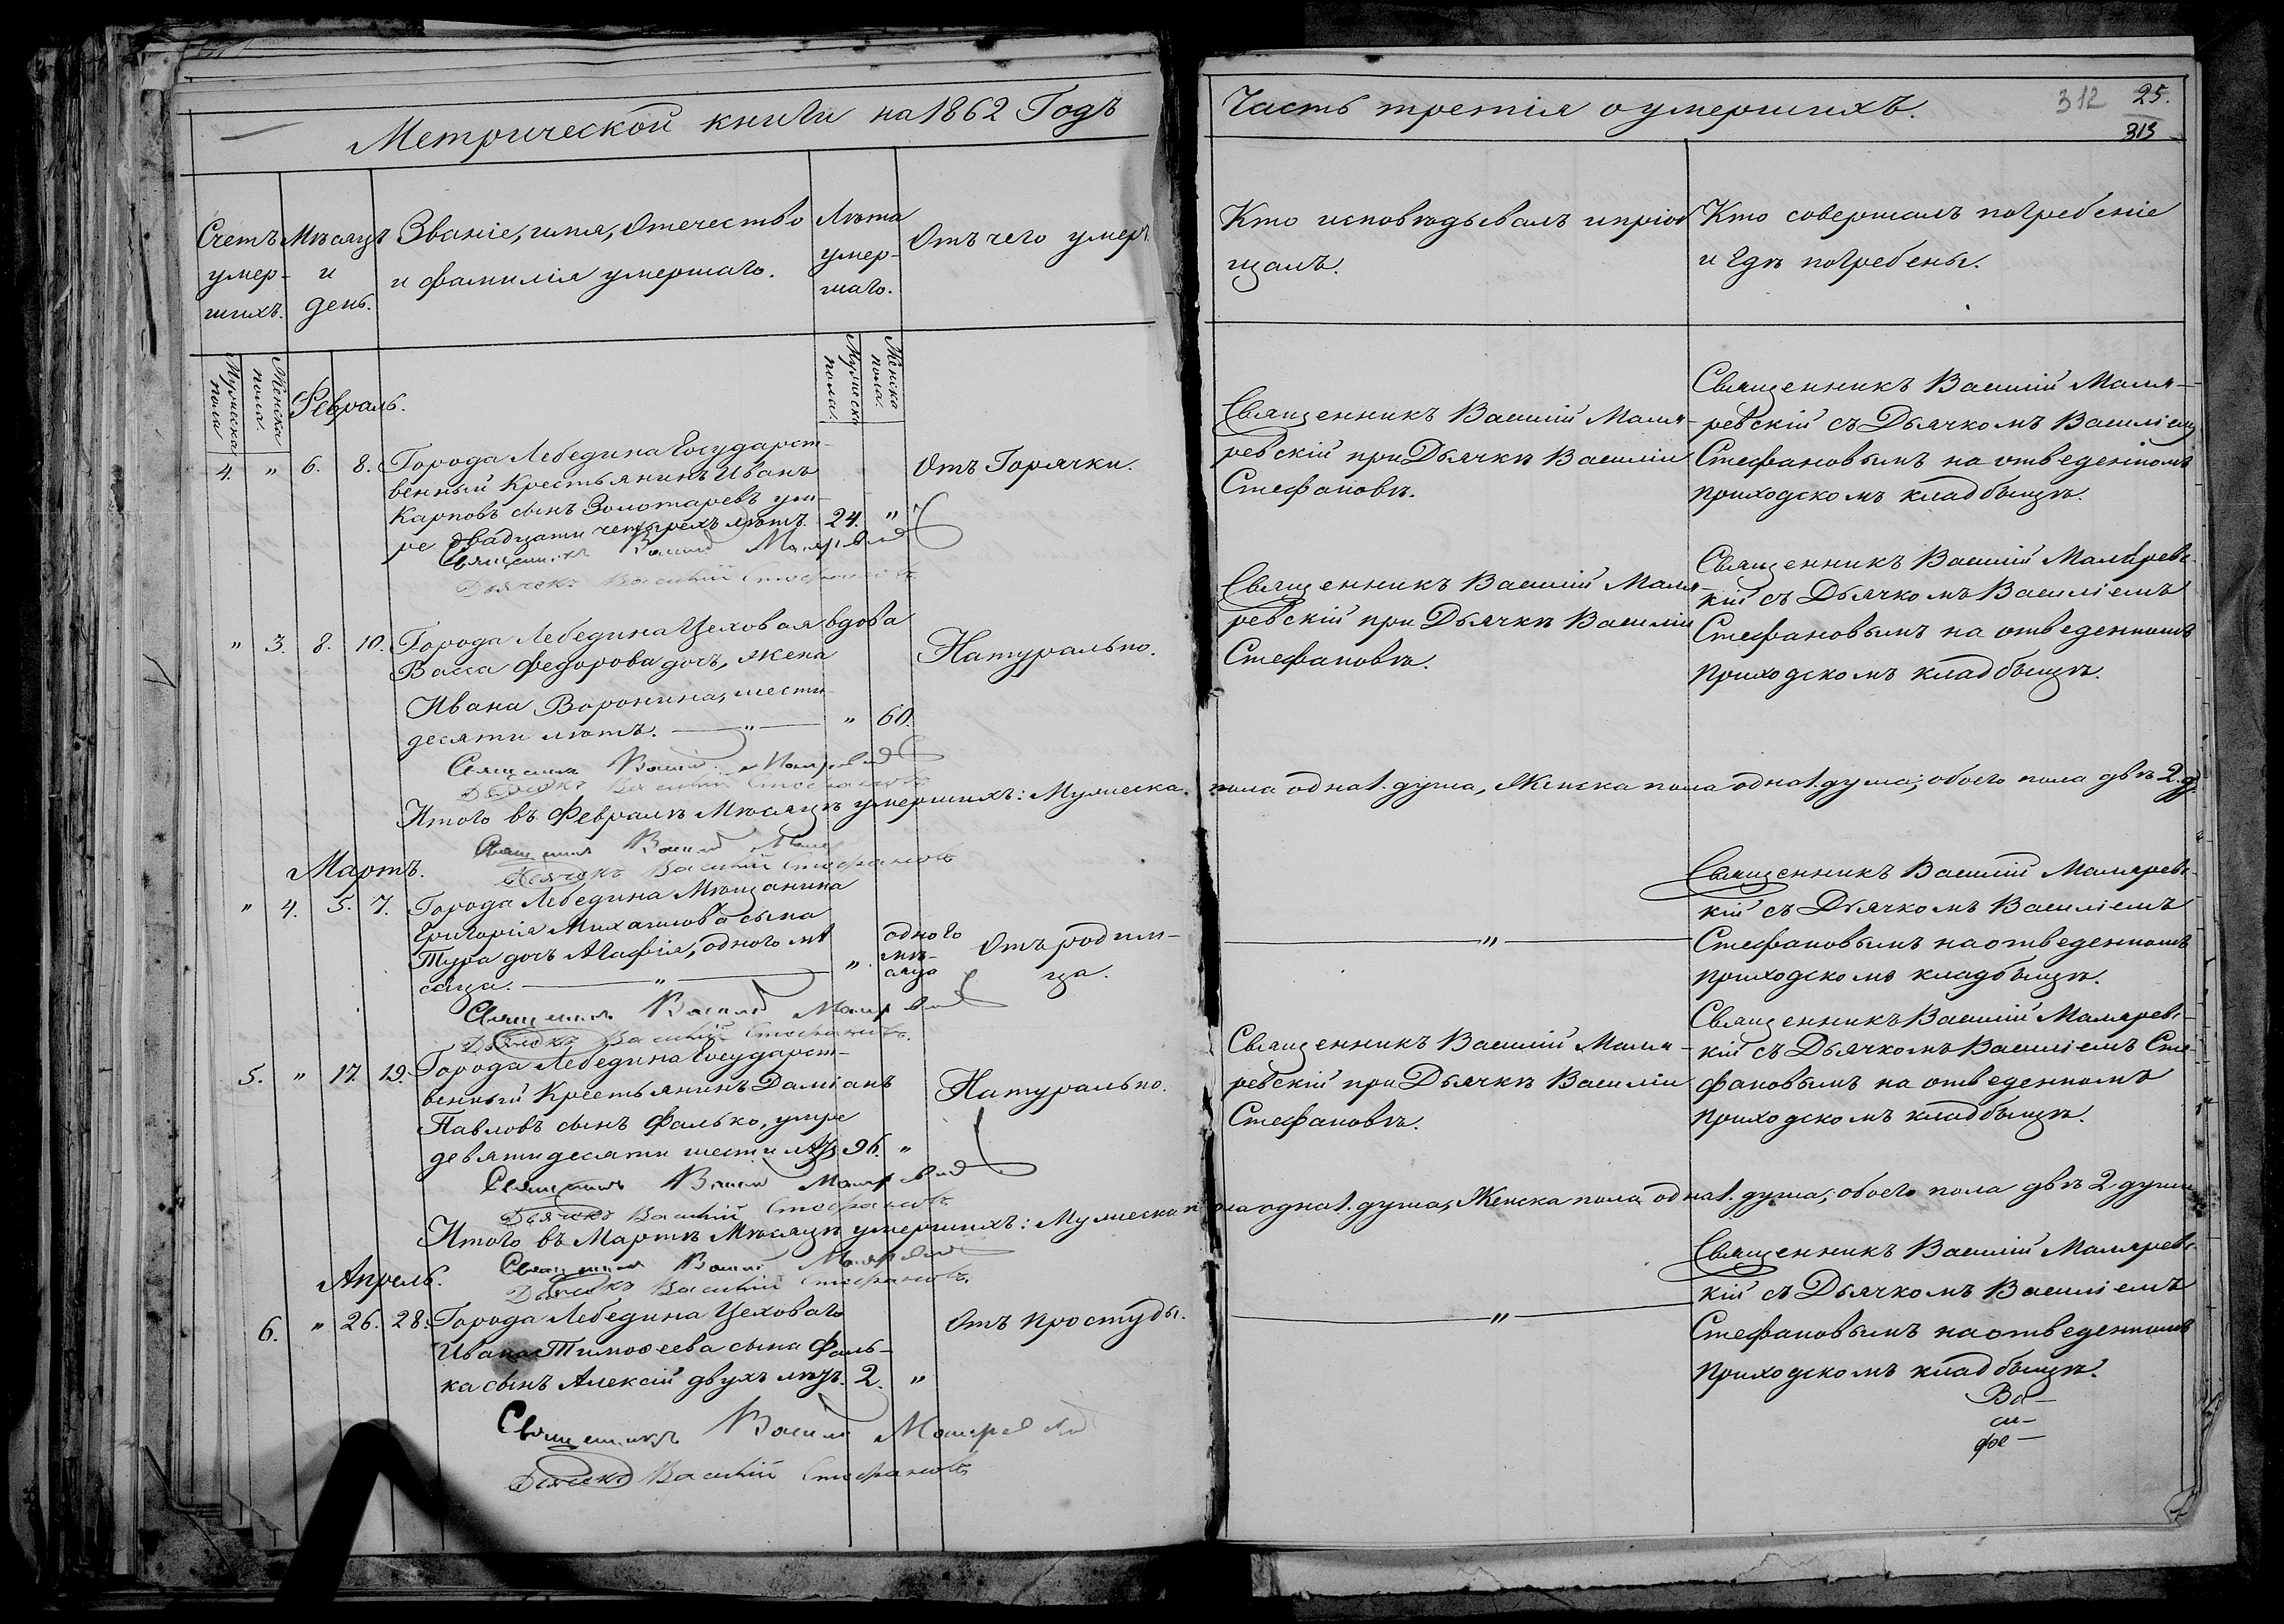 Метрической книги на 1862 Годъ
Счетъ
умер-
шихъ.
Мѣсяцъ
и
день.
Званіе, имя, Отечество
и фамилія умершаго.
Лѣта
умер-
шаго.
Отъ чего умеръ
Мужеска
пола
Женска
пола.
Мужеска
пола.
Женска
пола.
Февраль.
4. " 6. 8. Города Лебедина Государст-
венный Крестьянинъ Иванъ
Карповъ сынъ Золотаревъ ум-
ре двадцати четырехъ лѣтъ. 24. "
Отъ Горячки.
Священникъ Василій Маляревскій
Дьячокъ Василій Стефановъ
" 3. 8. 10. Города Лебедина Цеховая вдова
Васса Федорова дочь, жена
Ивана Воронина, шести-
десяти лѣтъ. " " 60.
Натурально.
Священникъ Василій Маляревскій
Дьячокъ Василій Стефановъ
Итого въ Февралѣ Мѣсяцѣ умершихъ: Мужеска
Священникъ Василій
Дьячокъ Василій Стефановъ
Мартъ.
" 4. 5. 7. Города Лебедина Мѣщанина
Григорія Михаилова сына
Тура дочь Агафія, одного мѣ
сяца. " "
одного
мѣ-
сяца
Отъ родим-
ца.
Священникъ Василій Маляревскій
Дьячокъ Василій Стефановъ.
5. " 17. 19. Города Лебедина Государст-
венный Крестьянинъ Даміанъ
Павловъ сынъ Фалько, умре
девятидесяти шести лѣтъ 96. "
Натурально.
Священникъ Василій Маляревскій
Дьячокъ Василій Стефановъ
Итого въ Мартѣ Мѣсяцѣ умершихъ: Мужеска
Священникъ Василій Маляревскій
Дьячокъ Василій Стефановъ.
Апрель.
6. " 26. 28. Города Лебедина Цеховаго
Ивана Тимоѳеева сына Фаль-
ка сынъ Алексій двухъ лѣтъ. 2. "
Отъ простуды.
Священникъ Василій Маляревскій
Дьячокъ Василій Стефановъ
Часть третія о умершихъ.
312 25.
313
Кто исповѣдывалъ и пріоб
щалъ.
Кто совершалъ погребеніе
и гдѣ погребены.
Священникъ Василій Маля-
ревскій при Дьячкѣ Василіи
Стефановѣ.
Священникъ Василій Маля-
ревскій съ Дьячкомъ Василіемъ
Стефановымъ на отведенномъ
приходскомъ кладбищѣ.
Священникъ Василій Маля-
ревскій при Дьячкѣ Василіи
Стефановѣ.
Священникъ Василій Маляревс-
кій съ Дьячкомъ Василіемъ
Стефановымъ на отведенномъ
приходскомъ кладбищѣ.
пола одна 1. душа, Женска пола одна 1. душа; обоего пола двѣ 2. д.
"
Священникъ Василій Маляревс-
кій съ Дьячкомъ Василіемъ
Стефановымъ на отведенномъ
приходскомъ кладбищѣ.
Священникъ Василій Маля-
ревскій при Дьячкѣ Василіи
Стефановѣ.
Священникъ Василій Маляревс-
кій съ Дьячкомъ Василіемъ Сте-
фановымъ на отведенномъ
приходскомъ кладбищѣ.
пола одна 1. душа, Женска пола одна 1. душа; обоего пола двѣ 2 души
"
Священникъ Василій Маляревс-
кій съ Дьячкомъ Василіемъ
Стефановымъ на отведенномъ
приходскомъ кладбищѣ.
Ва-
си-
фе-